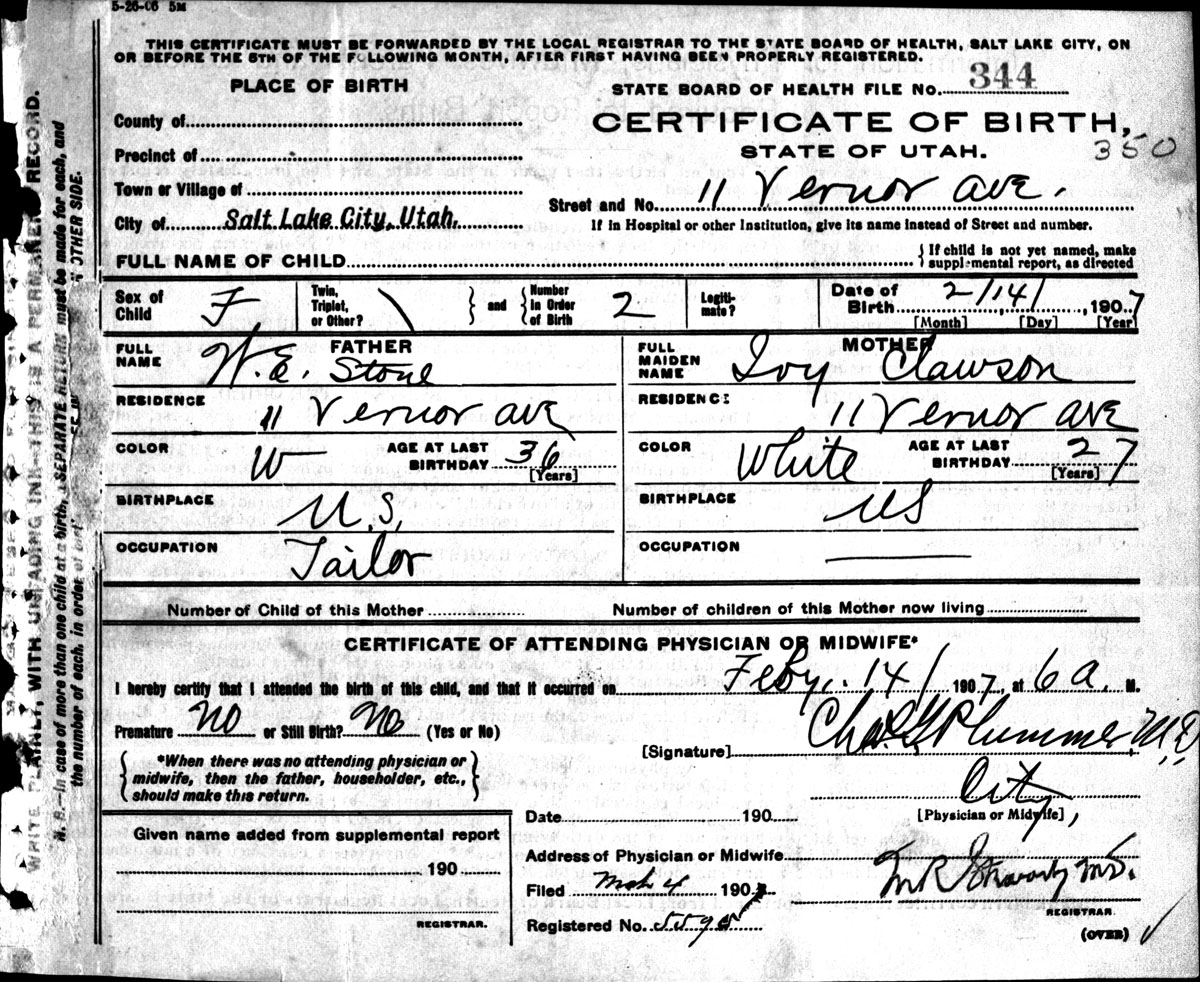 5-26-06 5M
THIS CERTIFICATE MUST BE FORWARDED BY THE LOCAL REGISTRAR TO THE STATE BOARD OF HEALTH, SALT LAKE CITY, ON
OR BEFORE THE 5TH OF THE FOLLOWING MONTH, AFTER FIRST HAVING BEEN PROPERLY REGISTERED.
PLACE OF BIRTH
STATE BOARD OF HEALTH FILE NO. 344
County of
CERTIFICATE OF BIRTH,
Precinct of
STATE OF UTAH.
350
Town or Village of
Street and No. 11 Vernor ave.
City of Salt Lake City, Utah.
If in Hospital or other Institution, give its name instead of Street and number.
FULL NAME OF CHILD
{ If child is not yet named, make
supplemental report, as directed
Sex of Child F
Twin, Triplet, or Other? \ } and { Number in Order of Birth 2
Legiti-mate?
Date of Birth 2/14/ 1907
[Month] [Day] [Year]
FATHER
FULL NAME W.E. Stone
MOTHER
FULL MAIDEN NAME Ivy Clawson
RESIDENCE 11 Vernor ave
RESIDENCE 11 Vernor ave
COLOR W AGE AT LAST BIRTHDAY 36 [Years]
COLOR White AGE AT LAST BIRTHDAY 27 [Years]
BIRTHPLACE U.S.
BIRTHPLACE US
OCCUPATION Tailor
OCCUPATION
Number of Child of this Mother
Number of children of this Mother now living
CERTIFICATE OF ATTENDING PHYSICIAN OR MIDWIFE*
I hereby certify that I attended the birth of this child, and that it occurred on Feby. 14/ 1907, at 6 a. M.
Premature No or Still Birth? No (Yes or No)
[Signature] Chas. G. Plummer M.D.
{ *When there was no attending physician or
midwife, then the father, householder, etc.,
should make this return. }
City
[Physician or Midwife],
Date 190
Given name added from supplemental report
190
REGISTRAR.
Address of Physician or Midwife
Filed Mch 4 190
M.D.
REGISTRAR.
Registered No.
(OVER)
WRITE PLAINLY, WITH UNFADING INK—THIS IS A PERMANENT RECORD.
N. B.—In case of more than one child at a birth, a SEPARATE RETURN must be made for each, and
the number of each, in order of birth
OTHER SIDE.